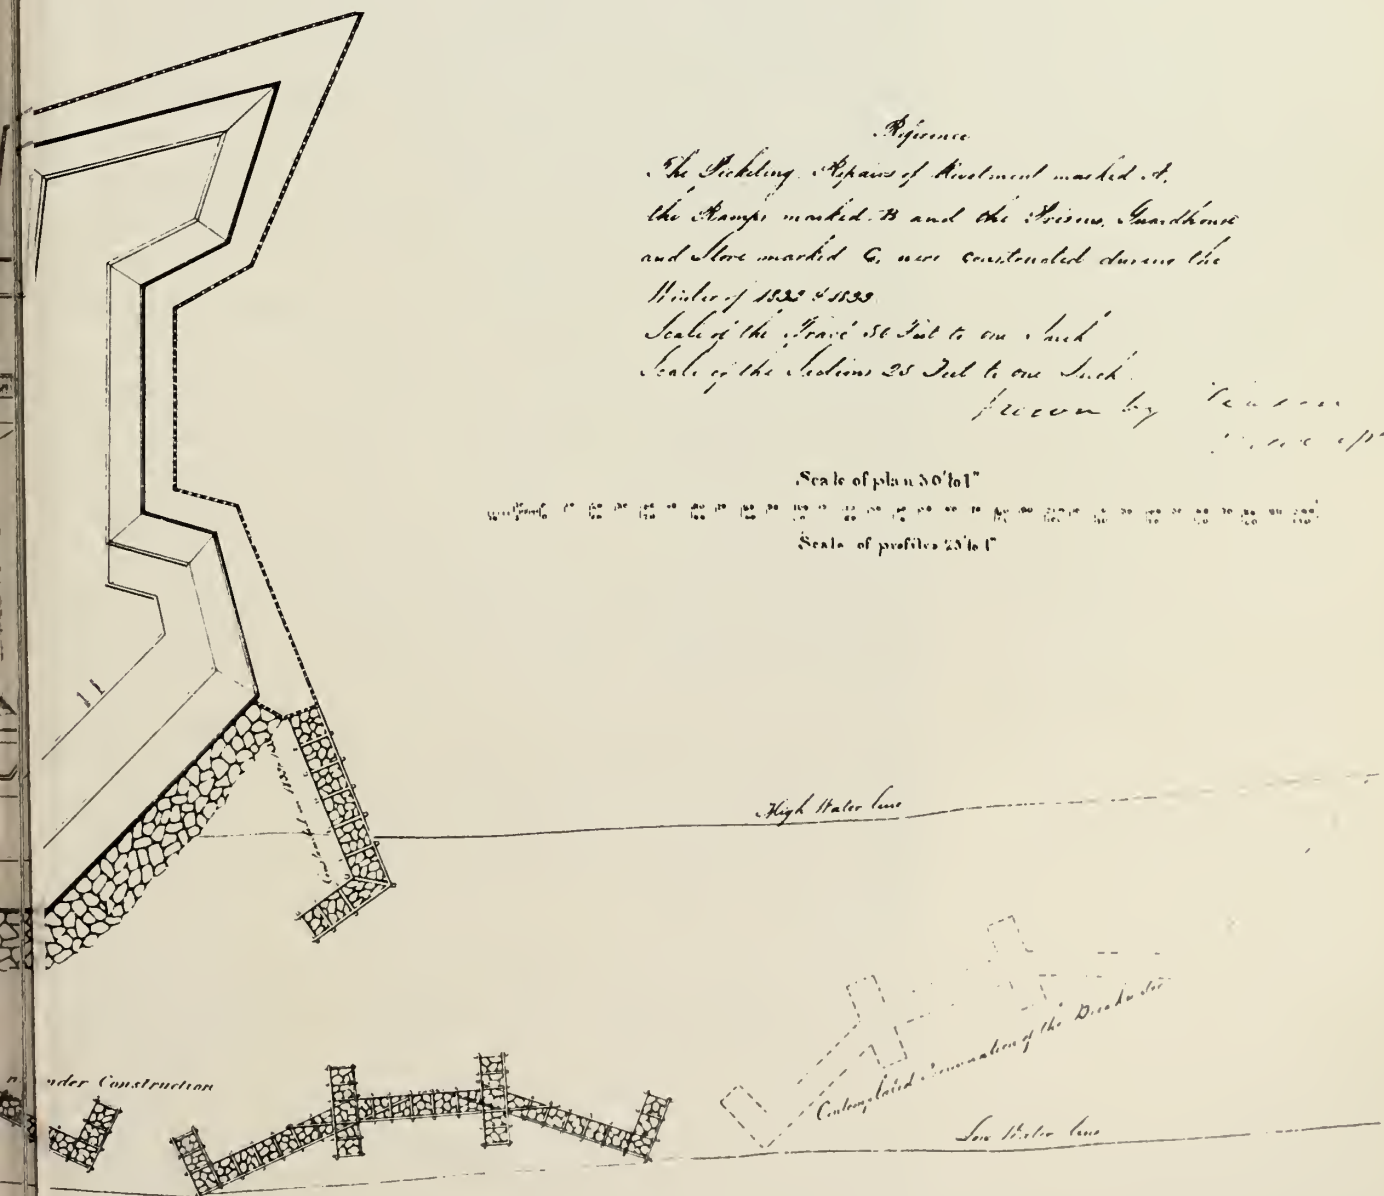 Reference
The Picketing, Repairs of Rivetment marked A,
the Ramps marked B and the Prisons, Guardhouse
and Store marked C, were constructed during the
Winter of 1832 & 1833.
Scale of the Tracé 50 Feet to one Inch
Scale of the Sections 25 Feet to one Inch
drawn by
Scale of plan 50' to 1"
Scale of profiles 25' to 1"
High Water line
under Construction
Contemplated Termination of the Breakwater
Low Water line